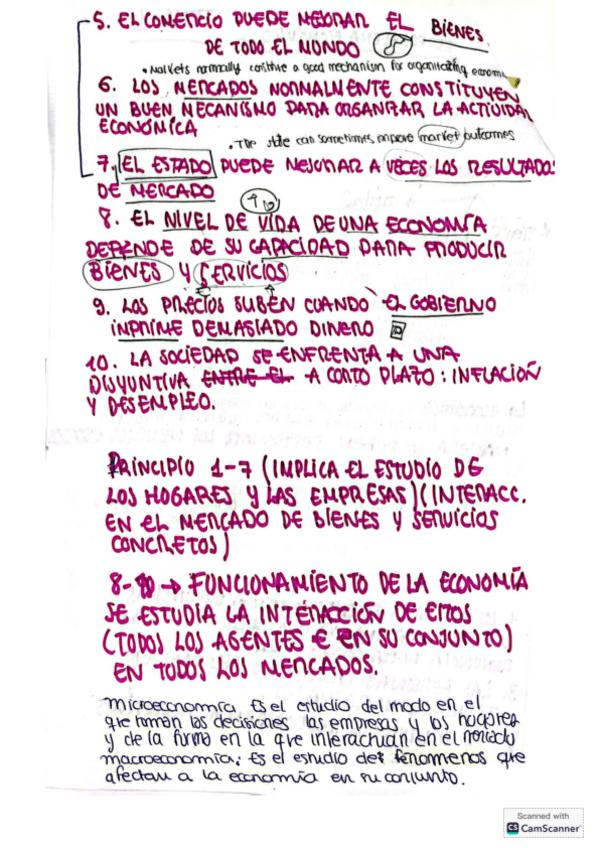 5. EL COMERCIO PUEDE MEJORAR EL BIENES
DE TODO EL MUNDO
• Markets normally constitue a good mechanism for organizating econom
6. LOS MERCADOS NORMALMENTE CONSTITUYEN
UN BUEN MECANISMO PARA ORGANIZAR LA ACTIVIDAD
ECONÓMICA
• The state can sometimes improve market outcomes
7. EL ESTADO PUEDE MEJORAR A VECES LOS RESULTADOS
DE MERCADO
8. EL NIVEL DE VIDA DE UNA ECONOMÍA
DEPENDE DE SU CAPACIDAD PARA PRODUCIR
BIENES Y SERVICIOS
9. LOS PRECIOS SUBEN CUANDO EL GOBIERNO
IMPRIME DEMASIADO DINERO
10. LA SOCIEDAD SE ENFRENTA A UNA
DISYUNTIVA ENTRE EL A CORTO PLAZO: INFLACIÓN
Y DESEMPLEO.
PRINCIPIO 1-7 (IMPLICA EL ESTUDIO DE
LOS HOGARES Y LAS EMPRESAS) (INTERACC.
EN EL MERCADO DE BIENES Y SERVICIOS
CONCRETOS)
8-10 → FUNCIONAMIENTO DE LA ECONOMÍA
SE ESTUDIA LA INTERACCIÓN DE ESTOS
(TODOS LOS AGENTES E EN SU CONJUNTO)
EN TODOS LOS MERCADOS.
microeconomía. Es el estudio del modo en el
que toman las decisiones las empresas y los hogares
y de la forma en la que interactúan en el mercado
macroeconomía: Es el estudio de fenomenos que
afectan a la economía en su conjunto.
Scanned with
CS CamScanner